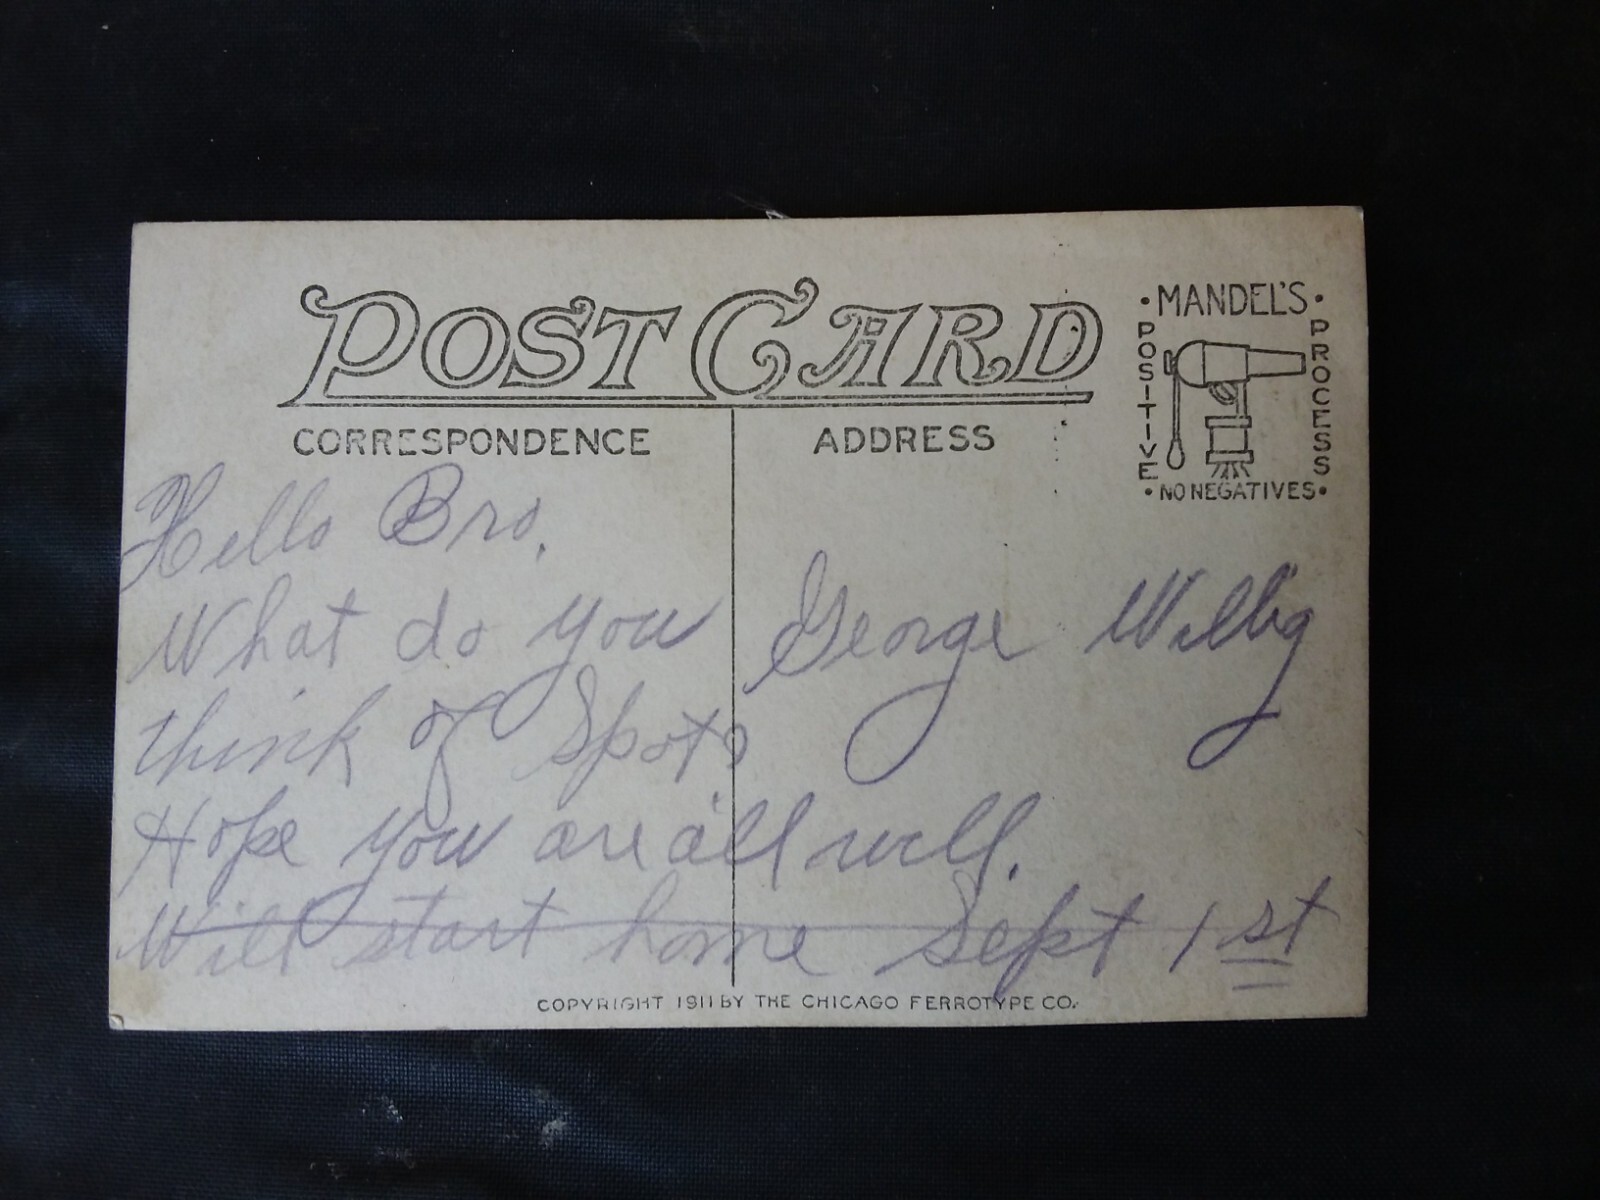 POST CARD
CORRESPONDENCE
ADDRESS
• MANDEL'S •
POSITIVE
PROCESS
• NO NEGATIVES •
Hello Bro.
What do you
think of Spot?
Hope you are all well.
Will start home Sept 1st
George
COPYRIGHT 1911 BY THE CHICAGO FERROTYPE CO.